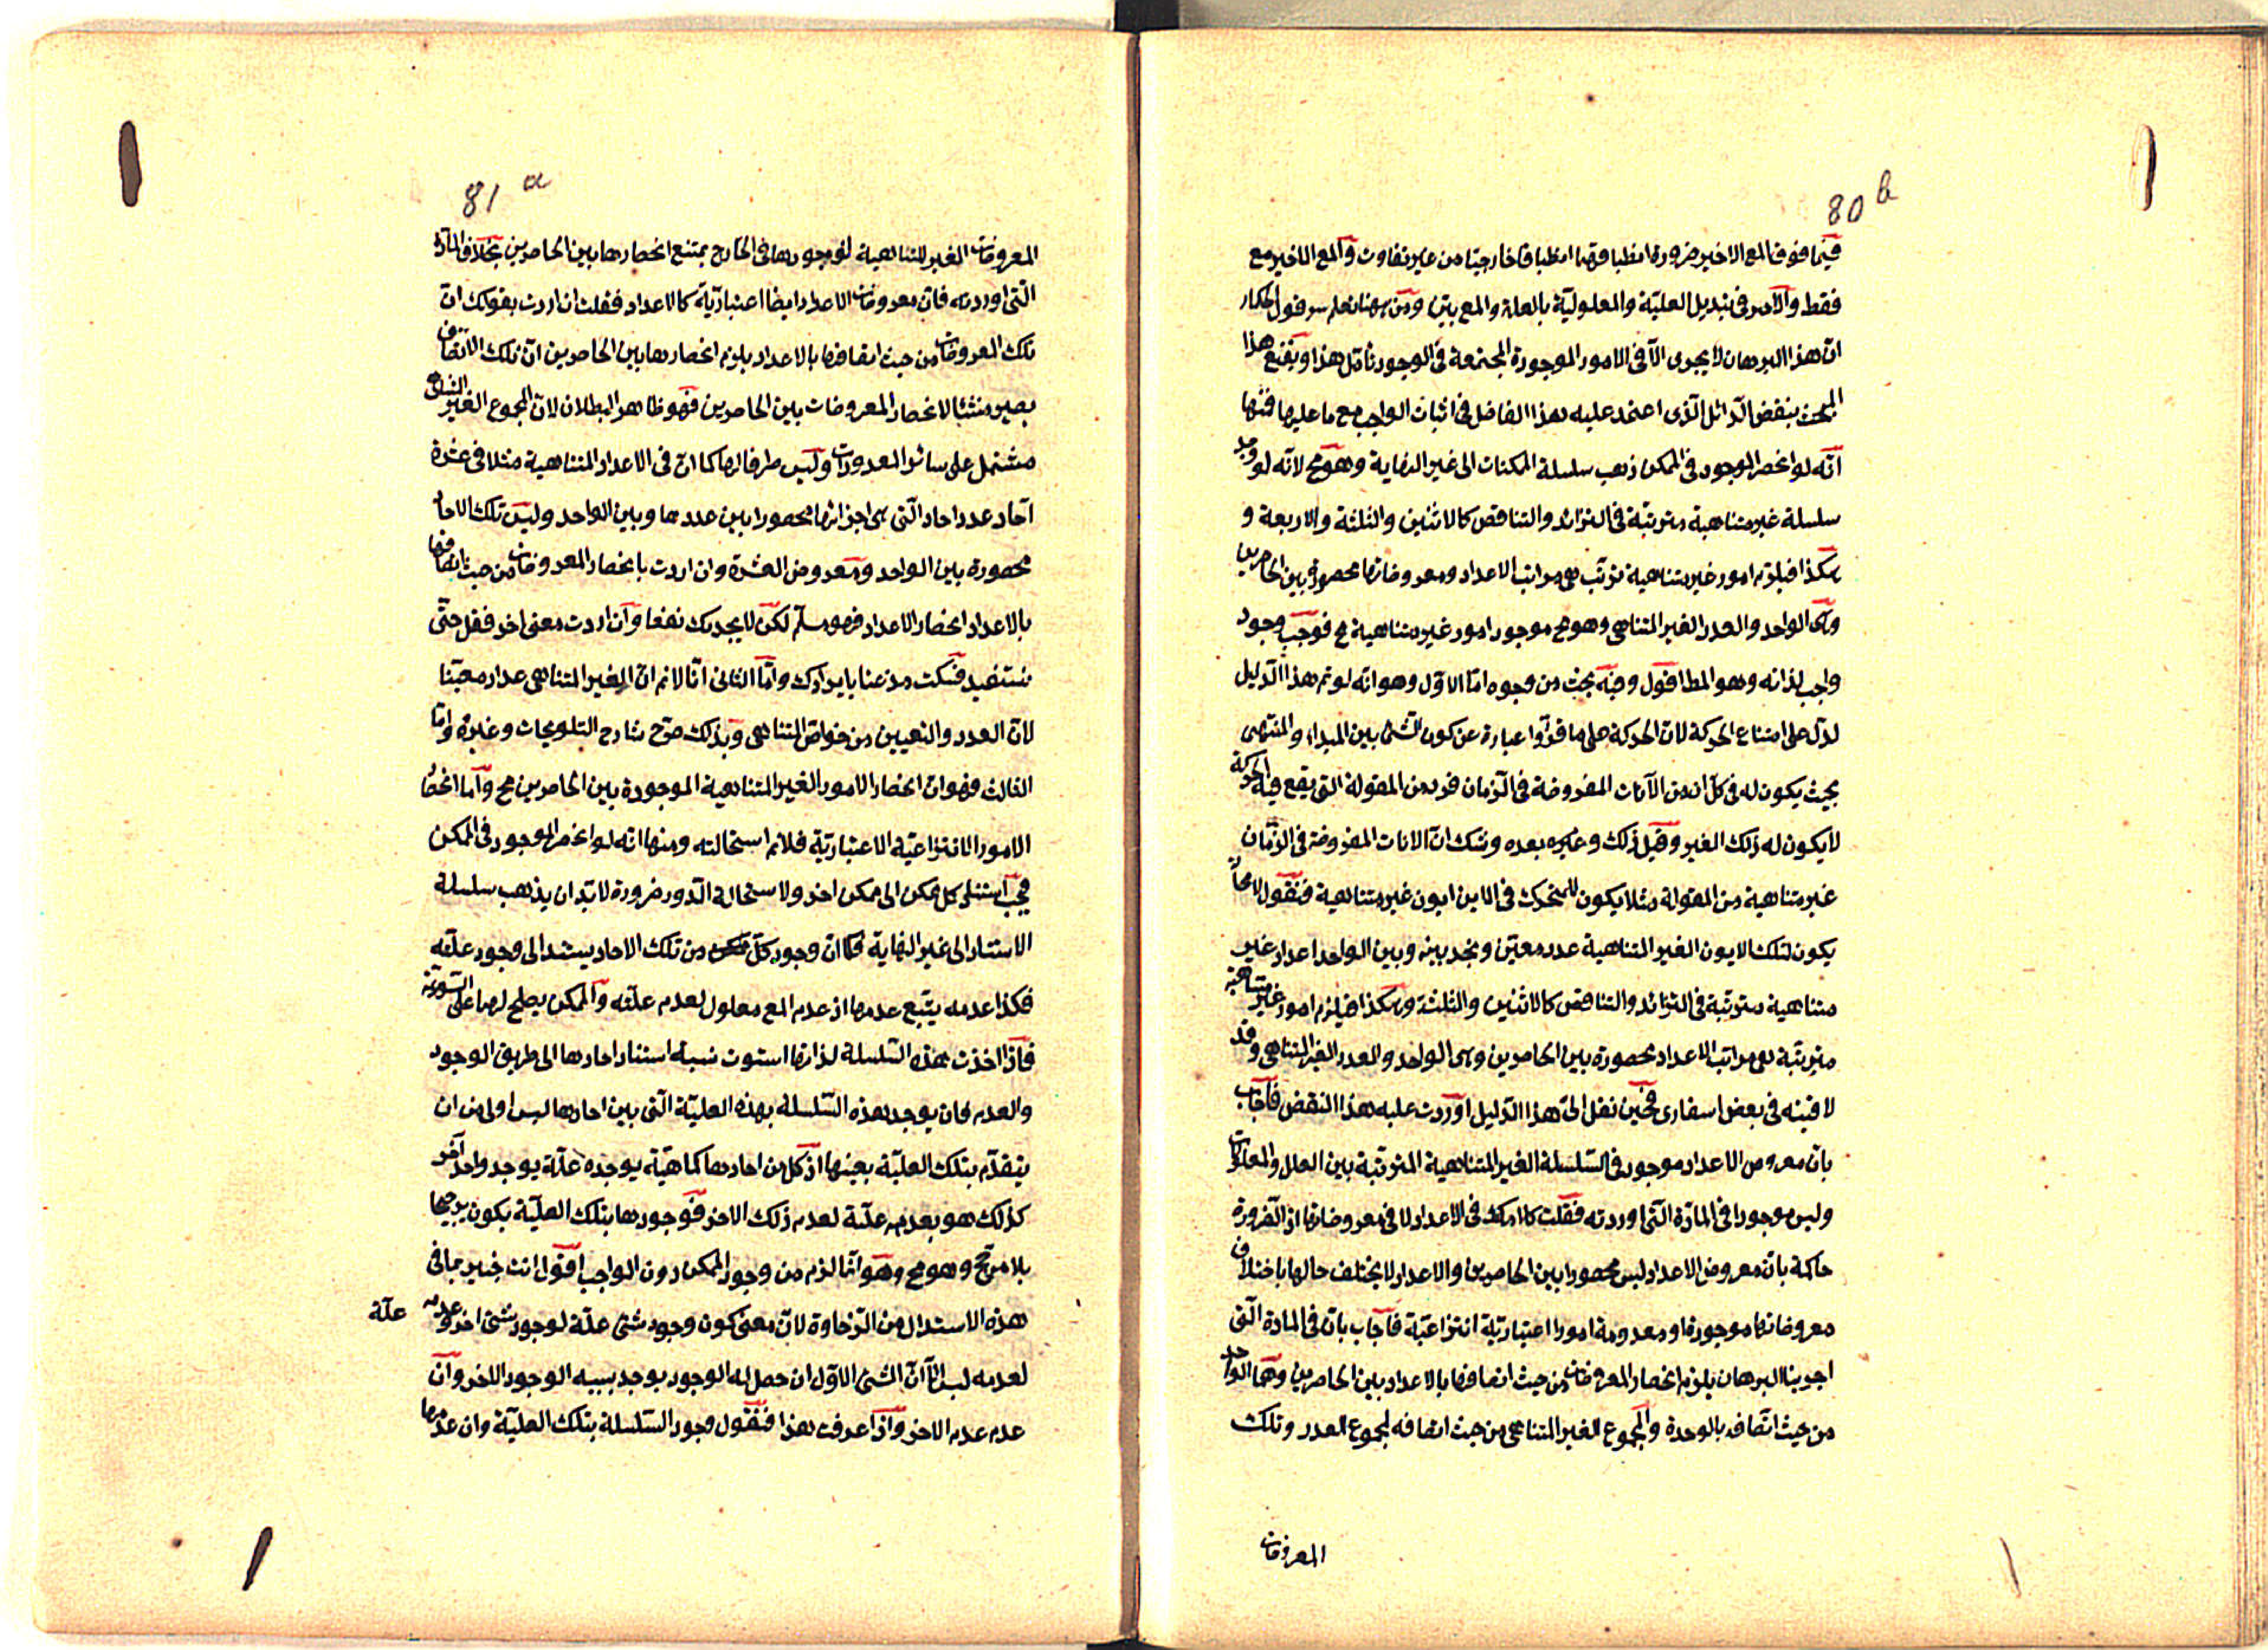 80 b
فيما فوق المع الاخير ضرورة انطباقهما انطباقا خارجيا من غير تفاوت والمع الاخير مع
فقط والامر فى تبديل العلية والمعلولية بالعلة والمع بين ومن ههنا نعلم سر قول الحكماء
ان هذا البرهان لا يجرى الا فى الامور الموجودة المجتمعة فى الوجود تأمل هذا هذا
المبحث بنقض الدلائل الذى اعتمد عليه هذا الفاضل فى اثبات الواجب مع ما عليها فمنها
انه لو انحصر الموجود فى الممكن ذهب سلسلة الممكنات الى غير النهاية وهو مح لانه لو وجد
سلسلة غير متناهية مترتبة فى التزائد والتناقص كالاثنين والثلثة والاربعة و
هكذا فيلزم امور غير متناهية ترتب هى مراتب الاعداد ومعروضاتها محصورة بين الحاصرين
وهى الواحد والعدد الغير المتناهى وهو مح موجود امور غير متناهية مح فوجب وجود
واجب لذاته وهو المط اقول وفيه بحث من وجوه اما الاول وهو انه لو تم هذا الدليل
لدل على امتناع الحركة لان الحركة على ما قرروا عبارة عن كون الشئ بين المبداء والمنتهى
بحيث يكون له فى كل ان من الآنات المفروضة فى الزمان فرد من المقولة التى يقع فيه الحركة
لا يكون له ذلك الغير وقبل ذلك وغيره بعده وشك ان الانات المفروضة فى الزمان
غير متناهية من المقولة مثلا يكون للمتحرك فى الاين ايون غير متناهية فنقول لا محالة
يكون لتلك الايون الغير المتناهية عدد معين ونجد بينه وبين الواحد اعداد غير
متناهية مترتبة فى التزائد والتناقص كالاثنين والثلثة وهكذا فيلزم امور غير متناهية
مترتبة هى مراتب الاعداد محصورة بين الحاصرين وهى الواحد والعدد الغير المتناهى وقد
لاقيته فى بعض اسفارى فحين نقل الى هذا الدليل اوردت عليه هذا النقض فاجاب
بان معروض الاعداد موجود فى السلسلة الغير المتناهية المترتبة بين العلل والمعلولات
وليس موجودا فى المادة التى اوردته فقلت كلامك فى الاعداد لا فى معروضاتها اذ الضرورة
حاكمة بان معروض الاعداد ليس محصورا بين الحاصرين والاعداد لا يختلف حالها باختلاف
معروضاتها موجودة او معدومة امورا اعتبارية انتزاعية فاجاب بان فى المادة التى
اجرينا البرهان يلزم انحصار المعروضات من حيث اتصافها بالاعداد بين الحاصرين وهما الواحد
من حيث اتصافه بالوحدة والمجموع الغير المتناهى من حيث اتصافه لمجموع العدد وتلك
المعروضات
81 a
المعروضات الغير المتناهية لوجودها فى الخارج يمتنع انحصارها بين الحاصرين بخلاف المادة
التى اوردته فان معروضات الاعداد ايضا اعتبارية كالاعداد فقلت ان اردت بقولك ان
تلك المعروضات من حيث اتصافها بالاعداد يلزم انحصارها بين الحاصرين ان تلك الاتصاف
يصير منشئا لانحصار المعروضات بين الحاصرين فهو ظاهر البطلان لان المجموع الغير المتناهى
مشتمل على سائر المعدودات وليس طرفا لها كما ان فى الاعداد المتناهية مثلا فى عشرة
آحاد عدد احاد التى هى اجزائها محصورا بين عددها وبين الواحد وليس تلك الاحاد
محصورة بين الواحد ومعروض العشرة وان اردت بانحصار المعروضات من حيث اتصافها
بالاعداد انحصار الاعداد فهو مسلم لكن لا يجديك نفعا وان اردت معنى اخر فقل حتى
نستفيد فسكت مذعنا بايرادك واما الثانى انا لانم ان الغير المتناهى عددا معينا
لان العدد والتعيين من خواص المتناهى وبذلك صرح شارح التلويحات وغيره واما
الثالث فهو ان انحصار الامور الغير المتناهية الموجودة بين الحاصرين مح واما انحصار
الامور الانتزاعية الاعتبارية فلانم استحالته ومنها انه لو انحصر الموجود فى الممكن
فيجب استناد كل ممكن الى ممكن اخر ولاستحالة الدور ضرورة لابد ان يذهب سلسلة
الاستناد الى غير النهاية فكما ان وجود كل ممكن من تلك الاحاد يستند الى وجود علته
فكذا عدمه يتبع عدمها اذ عدم المع معلول لعدم علته والممكن يصلح لهما على السوية
فاذا اخذت هذه السلسلة لذاتها استوت نسبة استناد احادها الى طريق الوجود
والعدم فان يوجد هذه السلسلة بهذه العلية التى بين احادها ليس اولى من ان
يتقدم بتلك العلية بعينها اذ كل من احادها كما هية يوجده علة يوجد واحد آخر
كذلك هو بعدمه علية لعدم ذلك الاخر فوجودها بتلك العلية يكون ترجيحا
بلا مرجح وهو مح وهو انما لزم من وجود الممكن دون الواجب اقول انت خبير بما فى
هذه الاستدلال من الرخاوة لان معنى كون وجود شئ علة لوجود شئ اخر وعدمه علة
لعدمه ليس الا ان الشئ الاول ان حصل له الوجود يوجد بسببه الوجود الاخر وان
عدم عدم الاخر واذا عرفت هذا فنقول وجود السلسلة بتلك العلية وان عدمها